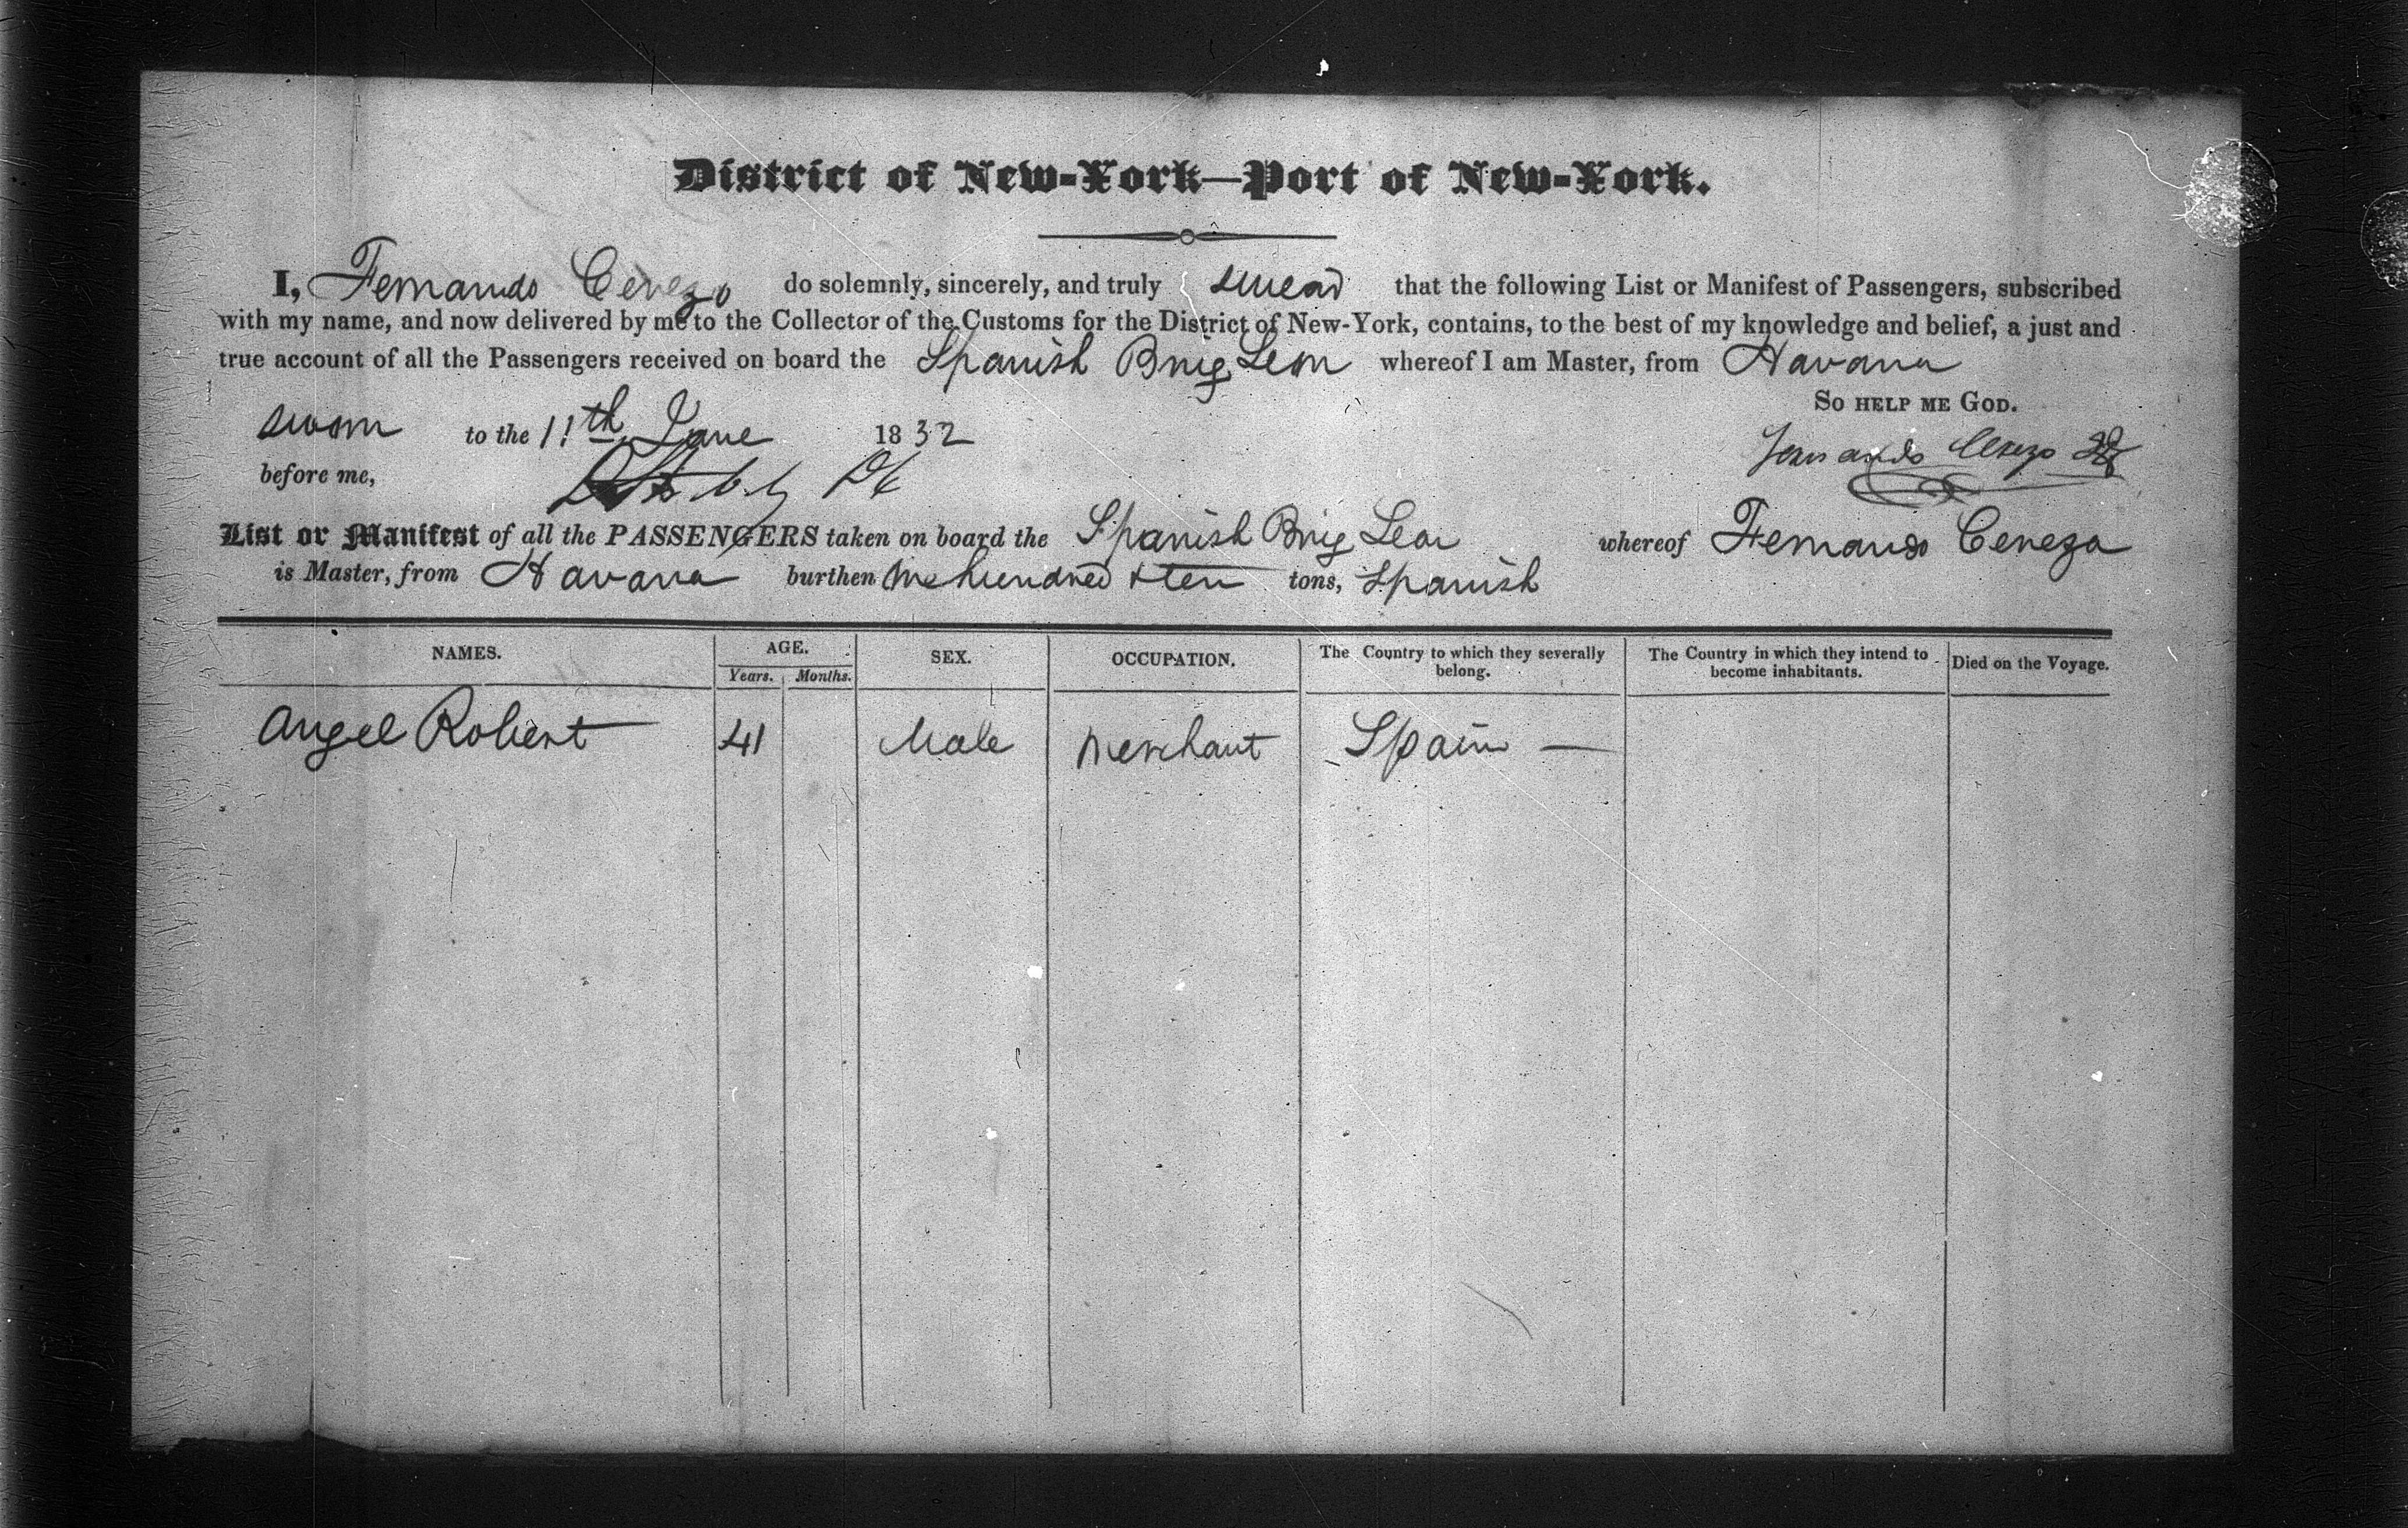 District of New-York—Port of New-York.
I, Fernando Cerezo do solemnly, sincerely, and truly swear that the following List or Manifest of Passengers, subscribed
with my name, and now delivered by me to the Collector of the Customs for the District of New-York, contains, to the best of my knowledge and belief, a just and
true account of all the Passengers received on board the Spanish Brig Leon whereof I am Master, from Havana
So HELP ME GOD.
sworn to the 11th June 1832
before me,
Fernando Cerezo
List or Manifest of all the PASSENGERS taken on board the Spanish Brig Leon whereof Fernando Cerezo
is Master, from Havana burthen One hundred & ten tons, Spanish
NAMES. AGE. SEX. OCCUPATION. The Country to which they severally belong. The Country in which they intend to become inhabitants. Died on the Voyage.
Years. Months.
Angel Robert 41 Male Merchant Spain —